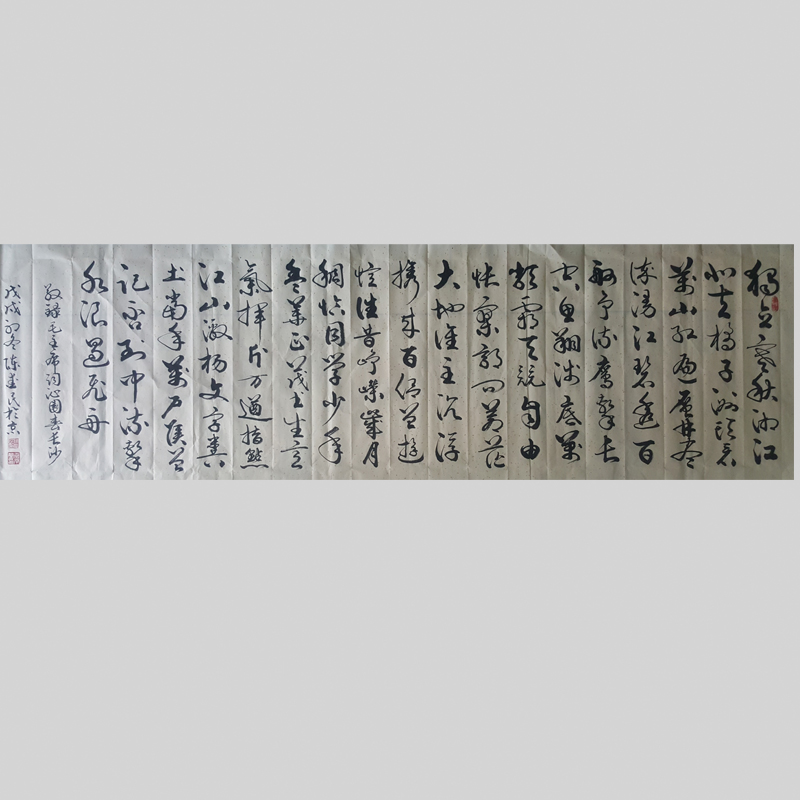 獨立寒秋湘江
北去橘子洲頭看
萬山红遍層林尽
染漫江碧透百
舸争流鷹擊长
空魚翔浅底萬
類霜天競自由
怅寥廓问蒼茫
大地谁主沉浮
携来百侣曾遊
忆往昔峥嵘歲月
稠恰同学少年
風華正茂书生意
氣揮斥方遒指點
江山激扬文字粪
土當年萬户侯曾
记否到中流擊
水浪遏飛舟
敬録毛主席词沁园春长沙
戊戌初冬陈民於京